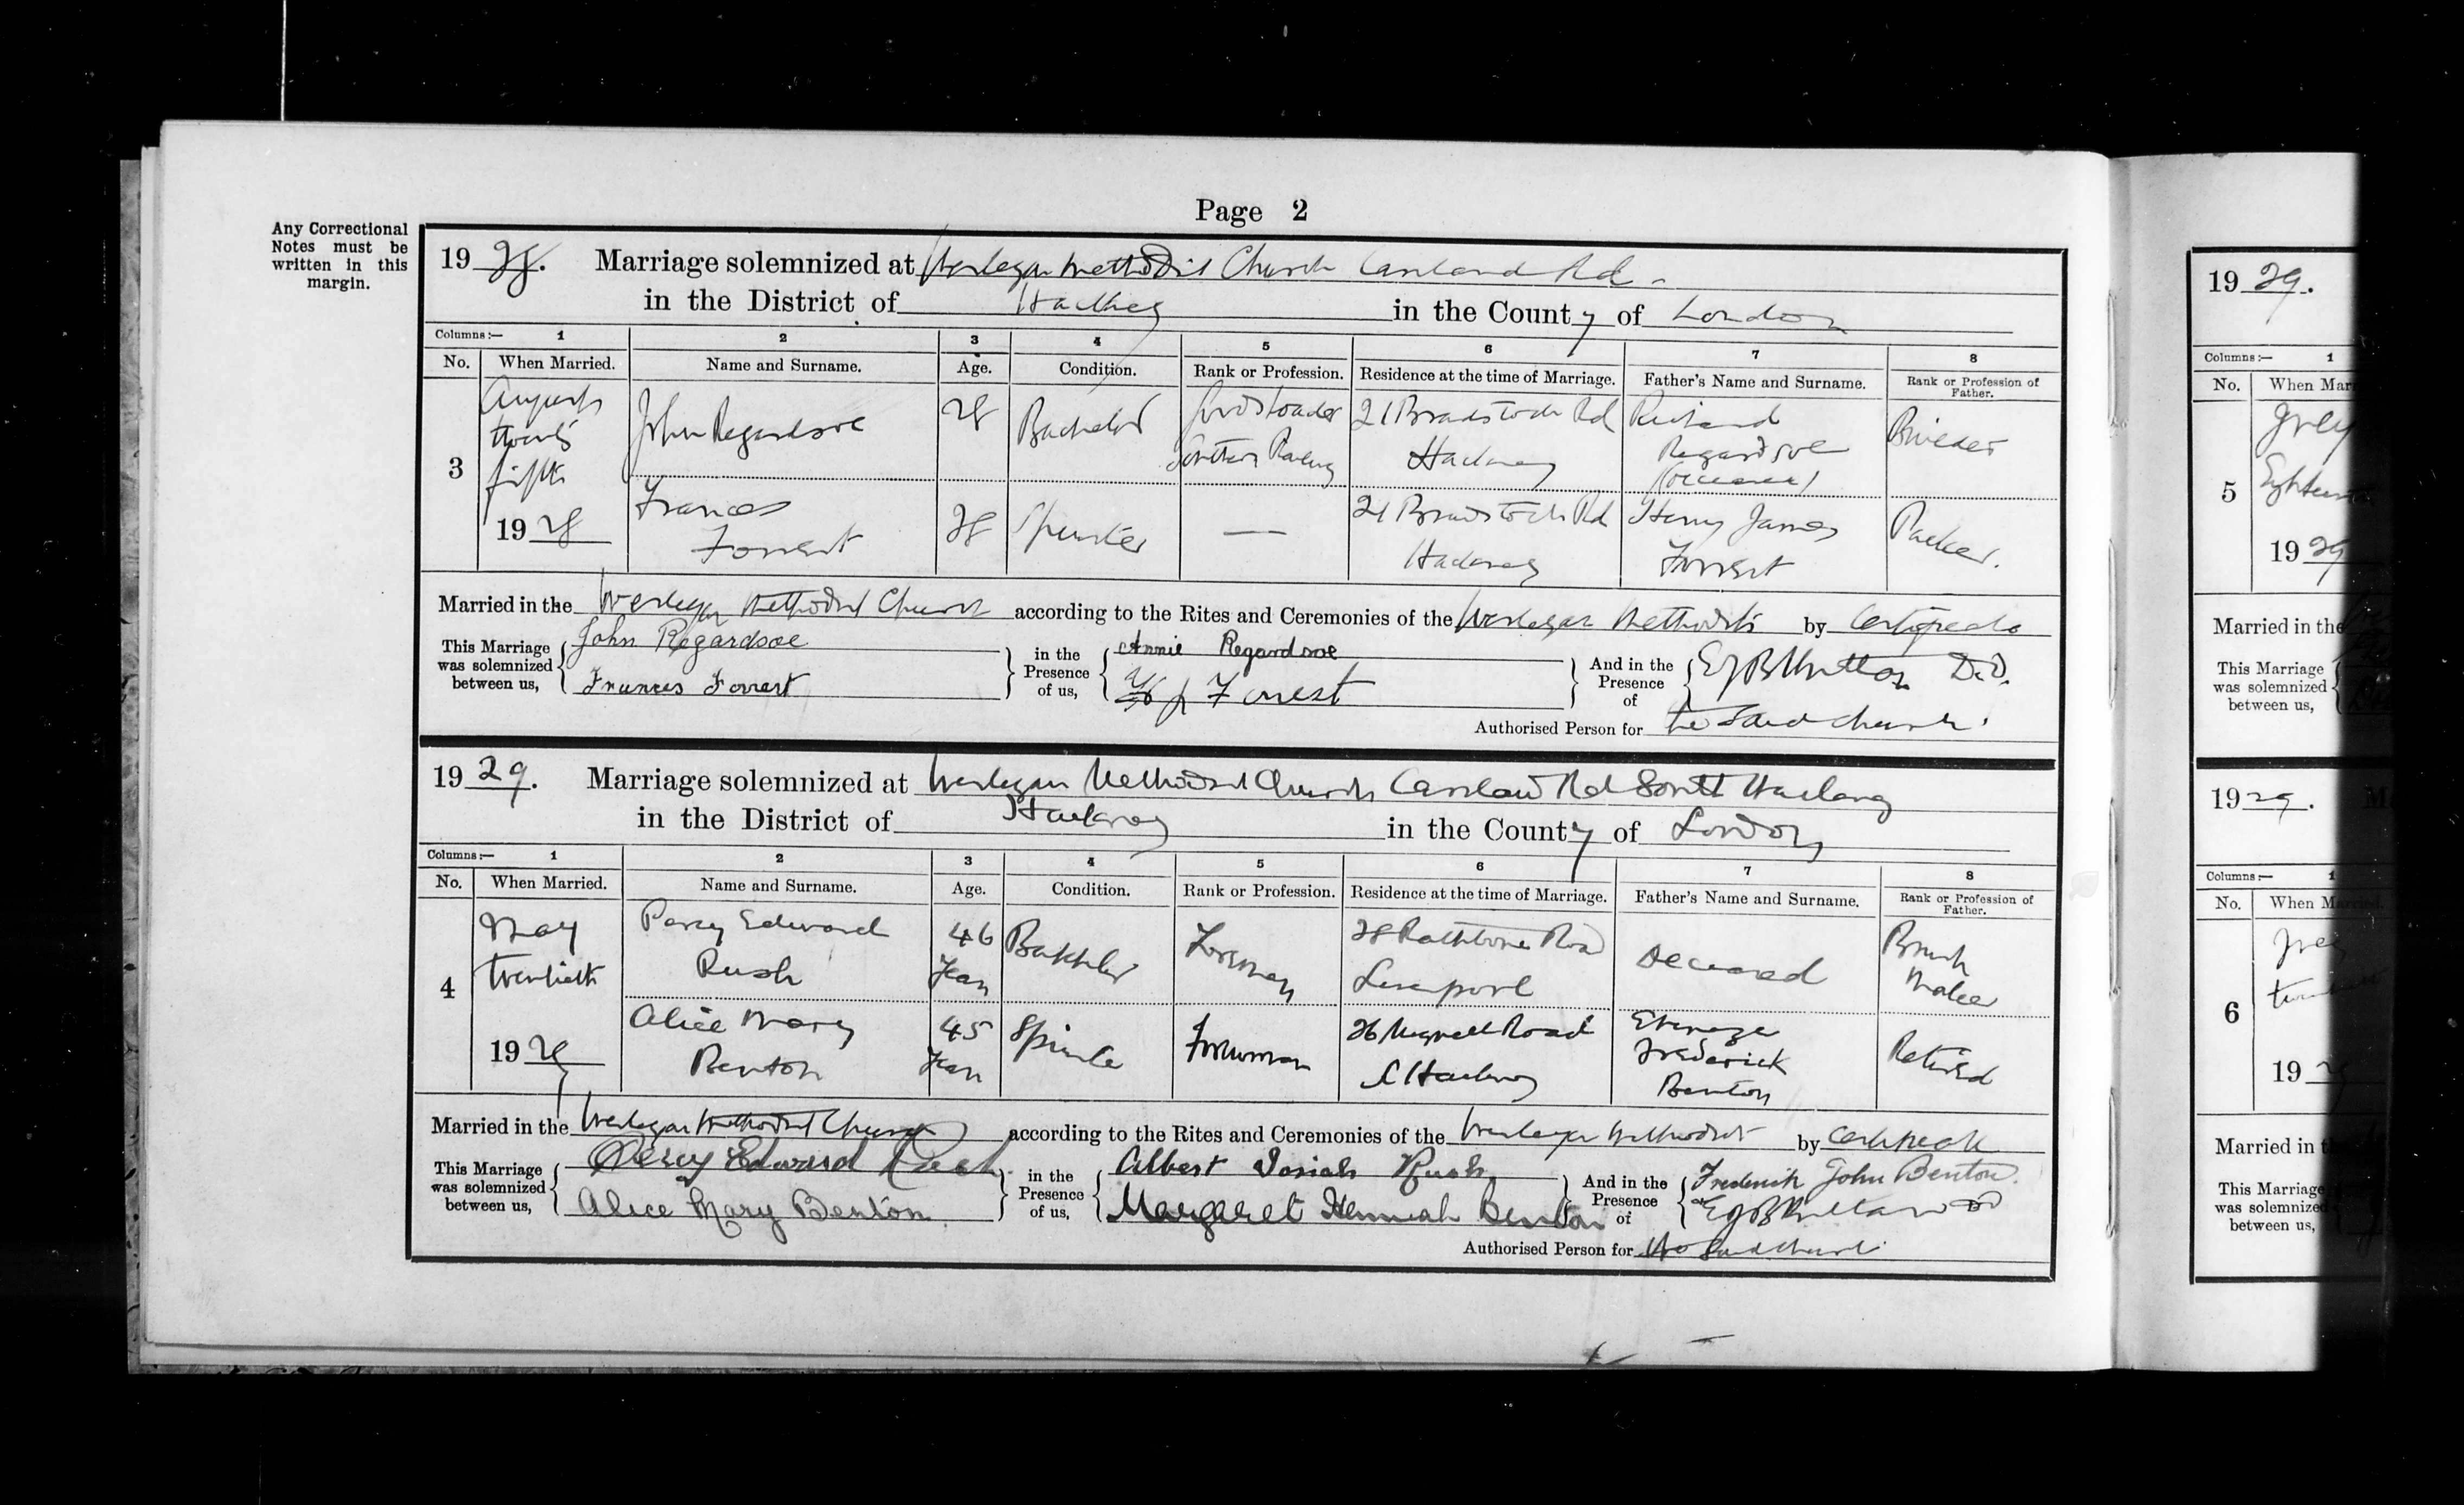 Page 2
Any Correctional
Notes must be
written in this
margin.
1928. Marriage solemnized at Wesleyan Methodist Church Cassland Rd.
in the District of Hackney in the County of London
Columns:— 1 2 3 4 5 6 7 8
No. When Married. Name and Surname. Age. Condition. Rank or Profession. Residence at the time of Marriage. Father's Name and Surname. Rank or Profession of Father.
3 August twenty fifth 1928 John Regardsoe 28 Bachelor Goods Loader Southern Railway 21 Bradstock Rd Hackney Richard Regardsoe (deceased)
Frances Forrest 28 Spinster — 21 Bradstock Rd Hackney Henry James Forrest Packer.
Married in the Wesleyan Methodist Church according to the Rites and Ceremonies of the Wesleyan Methodists by Certificate
This Marriage was solemnized between us, John Regardsoe Frances Forrest in the Presence of us, Annie Regardsoe Forrest And in the Presence of D.D.
Authorised Person for the said church.
1929. Marriage solemnized at Wesleyan Methodist Church Cassland Rd South Hackney
in the District of Hackney in the County of London
Columns:— 1 2 3 4 5 6 7 8
No. When Married. Name and Surname. Age. Condition. Rank or Profession. Residence at the time of Marriage. Father's Name and Surname. Rank or Profession of Father.
4 May twentieth 1929 Percy Edward Rush 46 Years Bachelor Foreman 28 Rathbone Road Liverpool Deceased Brush Maker
Alice Mary Benton 45 Years Spinster Forewoman 26 Road S Hackney Ebenezer Frederick Benton Retired
Married in the Wesleyan Methodist Church according to the Rites and Ceremonies of the Wesleyan Methodists by Certificate
This Marriage was solemnized between us, Percy Edward Rush Alice Mary Benton in the Presence of us, Albert Josiah Rush Margaret Hannah Benton And in the Presence of Frederick John Benton. DD
Authorised Person for the said church
1929.
Columns:— 1
No. When
5 July Eighteenth 1929
Married in the
This Marriage
was solemnized
between us,
1929. M
Columns:— 1
No. When Married.
6 19
Married in
This Marriage
was solemnized
between us,